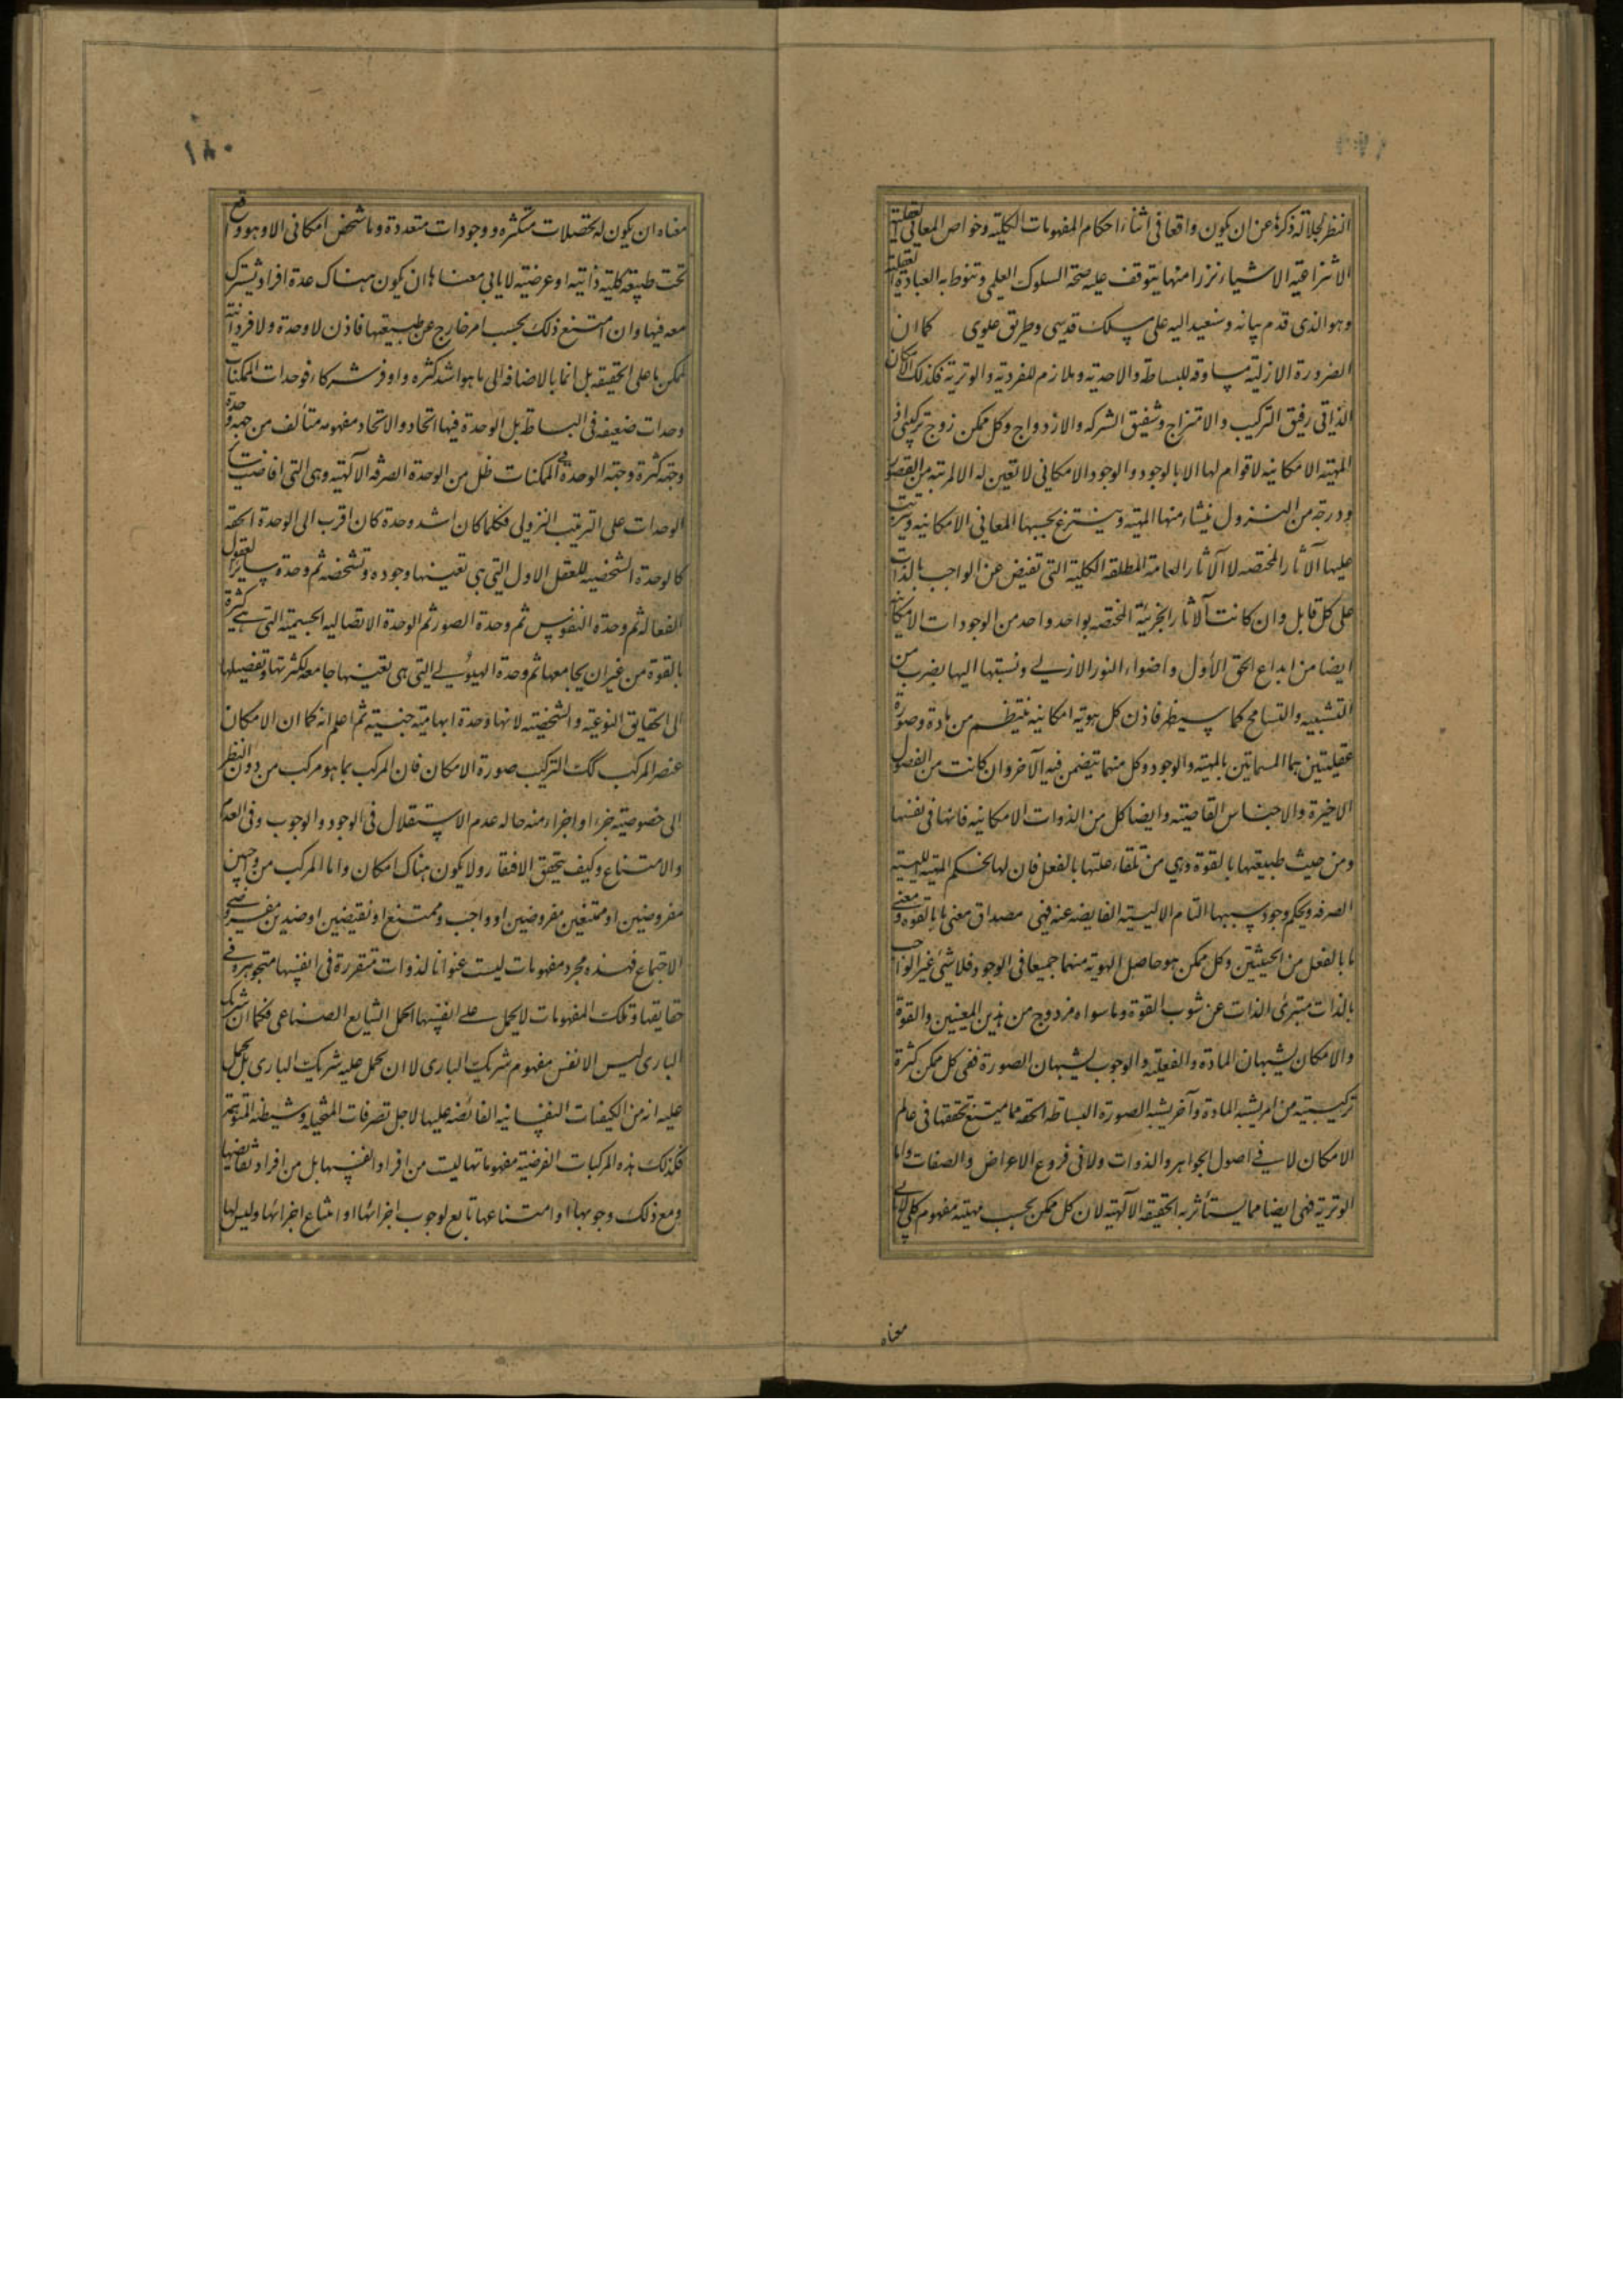 النظر لجلالة ذكرها عن ان يكون واقعا فى اثناء احكام المفهومات الكلية وخواص المعانى العقلية
الانتزاعية الا شيئا نزرا منها يتوقف عليه صحة السلوك العلمى وتنوط به العبادة العقلية
وهو الذى قدم بيانه وسنعيد اليه على مسلك قدسى وطريق علوى كما ان
الضرورة الازلية مساوقة للبساطة والاحدية وملازم للفردية والوترية فكذلك الامكان
الذاتى رفيق التركيب والامتزاج وشفيق الشركه والازدواج وكل ممكن زوج تركيبى اذ
المهية الامكانيه لا قوام لها الا بالوجود والوجود الامكانى لا تعين له الا لمرتبة من القصور
ودرجة من النزول ينشاء منها المهية وينتزع بحسبها المعانى الامكانيه ويترتب
عليها الآثار المختصه لا الآثار العامة المطلقه الكلية التى تفيض عن الواجب بالذات
على كل قابل وان كانت الآثار الجزئية المختصه بواحد واحد من الوجودات الامكانية
ايضا من ابداع الحق الاول واضواء النور الازلى ونسبتها اليها بضرب من
التشبيه والتسامح كما سيظهر فاذن كل هوية امكانيه ينتظم من مادة وصورة
عقليتين هما المسماتين بالمهية والوجود وكل منهما يتضمن فيه الآخر وان كانت من الفصول
الاخيرة والاجناس القاصية وايضا كل من الذوات الامكانيه فانها فى نفسها
ومن حيث طبيعتها بالقوة وهى من تلقاء علتها بالفعل فان لها بحكم المهية الليسية
الصرفه وبحكم وجود سببها التام الايسية الفايضه عنه فهى مصداق معنى ما بالقوه ومعنى
ما بالفعل من الحيثيتين وكل ممكن هو حاصل الهوية منهما جميعا فى الوجود فلا شئ غير الواجب
بالذات متبرئ الذات عن شوب القوة وما سواه مزدوج من هذين المعنيين والقوة
والامكان يشبهان المادة والفعلية والوجوب يشبهان الصورة ففى كل ممكن كثرة
تركيبية من امر يشبه المادة وآخر يشبه الصورة البساطة الحقه مما يمتنع تحققها فى عالم
الامكان لا فى اصول الجواهر والذوات ولا فى فروع الاعراض والصفات واما
الوترية فهى ايضا مما يستأثر به الحقيقه الآلهية لان كل ممكن بحسب مهيته مفهوم كلى لا يابى
معناه
١٨٠
معناه ان يكون له تحصلات متكثره ووجودات متعددة وما شخص امكانى الا وهو وقع
تحت طبيعة كلية ذاتية او عرضية لا يابى معناها ان يكون هناك عدة افراد يشترك
معه فيها وان امتنع ذلك بحسب امر خارج عن طبيعتها فاذن لا وحدة ولا فردانية
لممكن ما على الحقيقه بل انما بالاضافه الى ما هو اشد كثره واوفر شركاء فوحدات الممكنات
وحدات ضعيفه فى البساطة بل الوحدة فيها اتحاد والاتحاد مفهومه متألف من جهة وحدة
وجهة كثرة وجهة الوحدة فى الممكنات ظل من الوحدة الصرفه الآلهية وهى التى افاضت
الوحدات على الترتيب النزولى فكلما كان اشد وحدة كان اقرب الى الوحدة الحقه
كالوحدة الشخصيه للعقل الاول التى هى تعينها وجوده وتشخصه ثم وحدة ساير العقول
الفعاله ثم وحدة النفوس ثم وحدة الصور ثم الوحدة الاتصاليه الجسمية التى هى كثرة
بالقوة من غير ان يجامعها ثم وحدة الهيولى التى هى تعينها جامعه لكثرتها وتفصيلها
الى الحقايق النوعية والشخصية لانها وحدة ابهامية جنسية ثم اعلم انه كما ان الامكان
عنصر المركب كك التركيب صورة الامكان فان المركب بما هو مركب من دون النظر
الى خصوصية جزء او اجزاء منه حاله عدم الاستقلال فى الوجود والوجوب وفى العدم
والامتناع وكيف يتحقق الافتقار ولا يكون هناك امكان واما المركب من واجبين
مفروضين او ممتنعين مفروضين او واجب وممتنع او نقيضين او ضدين مفروضى
الاجتماع فهذه مجرد مفهومات ليست عنوانا لذوات متقررة فى انفسها متجوهرة فى
حقايقها وتلك المفهومات لا يحمل على انفسها الحمل الشايع الصناعى فكما ان شريك
البارى ليس الا نفس مفهوم شريك البارى لا ان يحمل عليه شريك البارى بل يحمل
عليه انه من الكيفيات النفسانيه الفائضه عليها لاجل تصرفات المتخيله وشيطنه المتوهمة
فكذلك هذه المركبات الفرضية مفهوماتها ليست من افراد انفسها بل من افراد نقائضها
ومع ذلك وجوبها او امتناعها تابع لوجوب اجزائها او امتناع اجزائها وليس لها